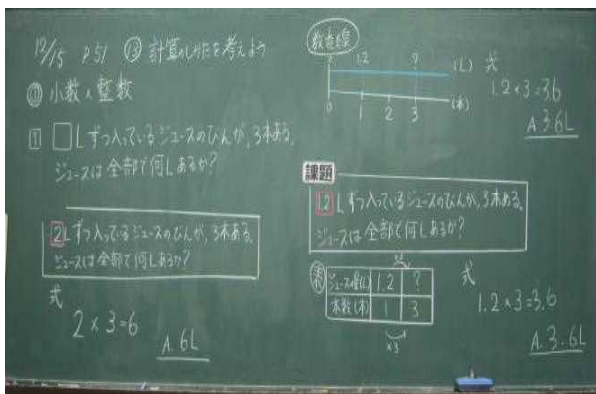 12/15 P.51 ⑬ 計算のしかたを考えよう
① 小数×整数
1 □Lずつ入っているジュースのびんが、3本ある。
ジュースは全部で何Lあるか?
2Lずつ入っているジュースのびんが、3本ある。
ジュースは全部で何Lあるか?
式
2×3=6
A.6L
数直線
0 1.2 ? (L)
0 1 2 3 (本)
式
1.2×3=3.6
A.3.6L
課題
1.2Lずつ入っているジュースのびんが、3本ある。
ジュースは全部で何Lあるか?
×3
表
ジュースの量(L) 1.2 ?
本数(本) 1 3
×3
式
1.2×3=3.6
A.3.6L